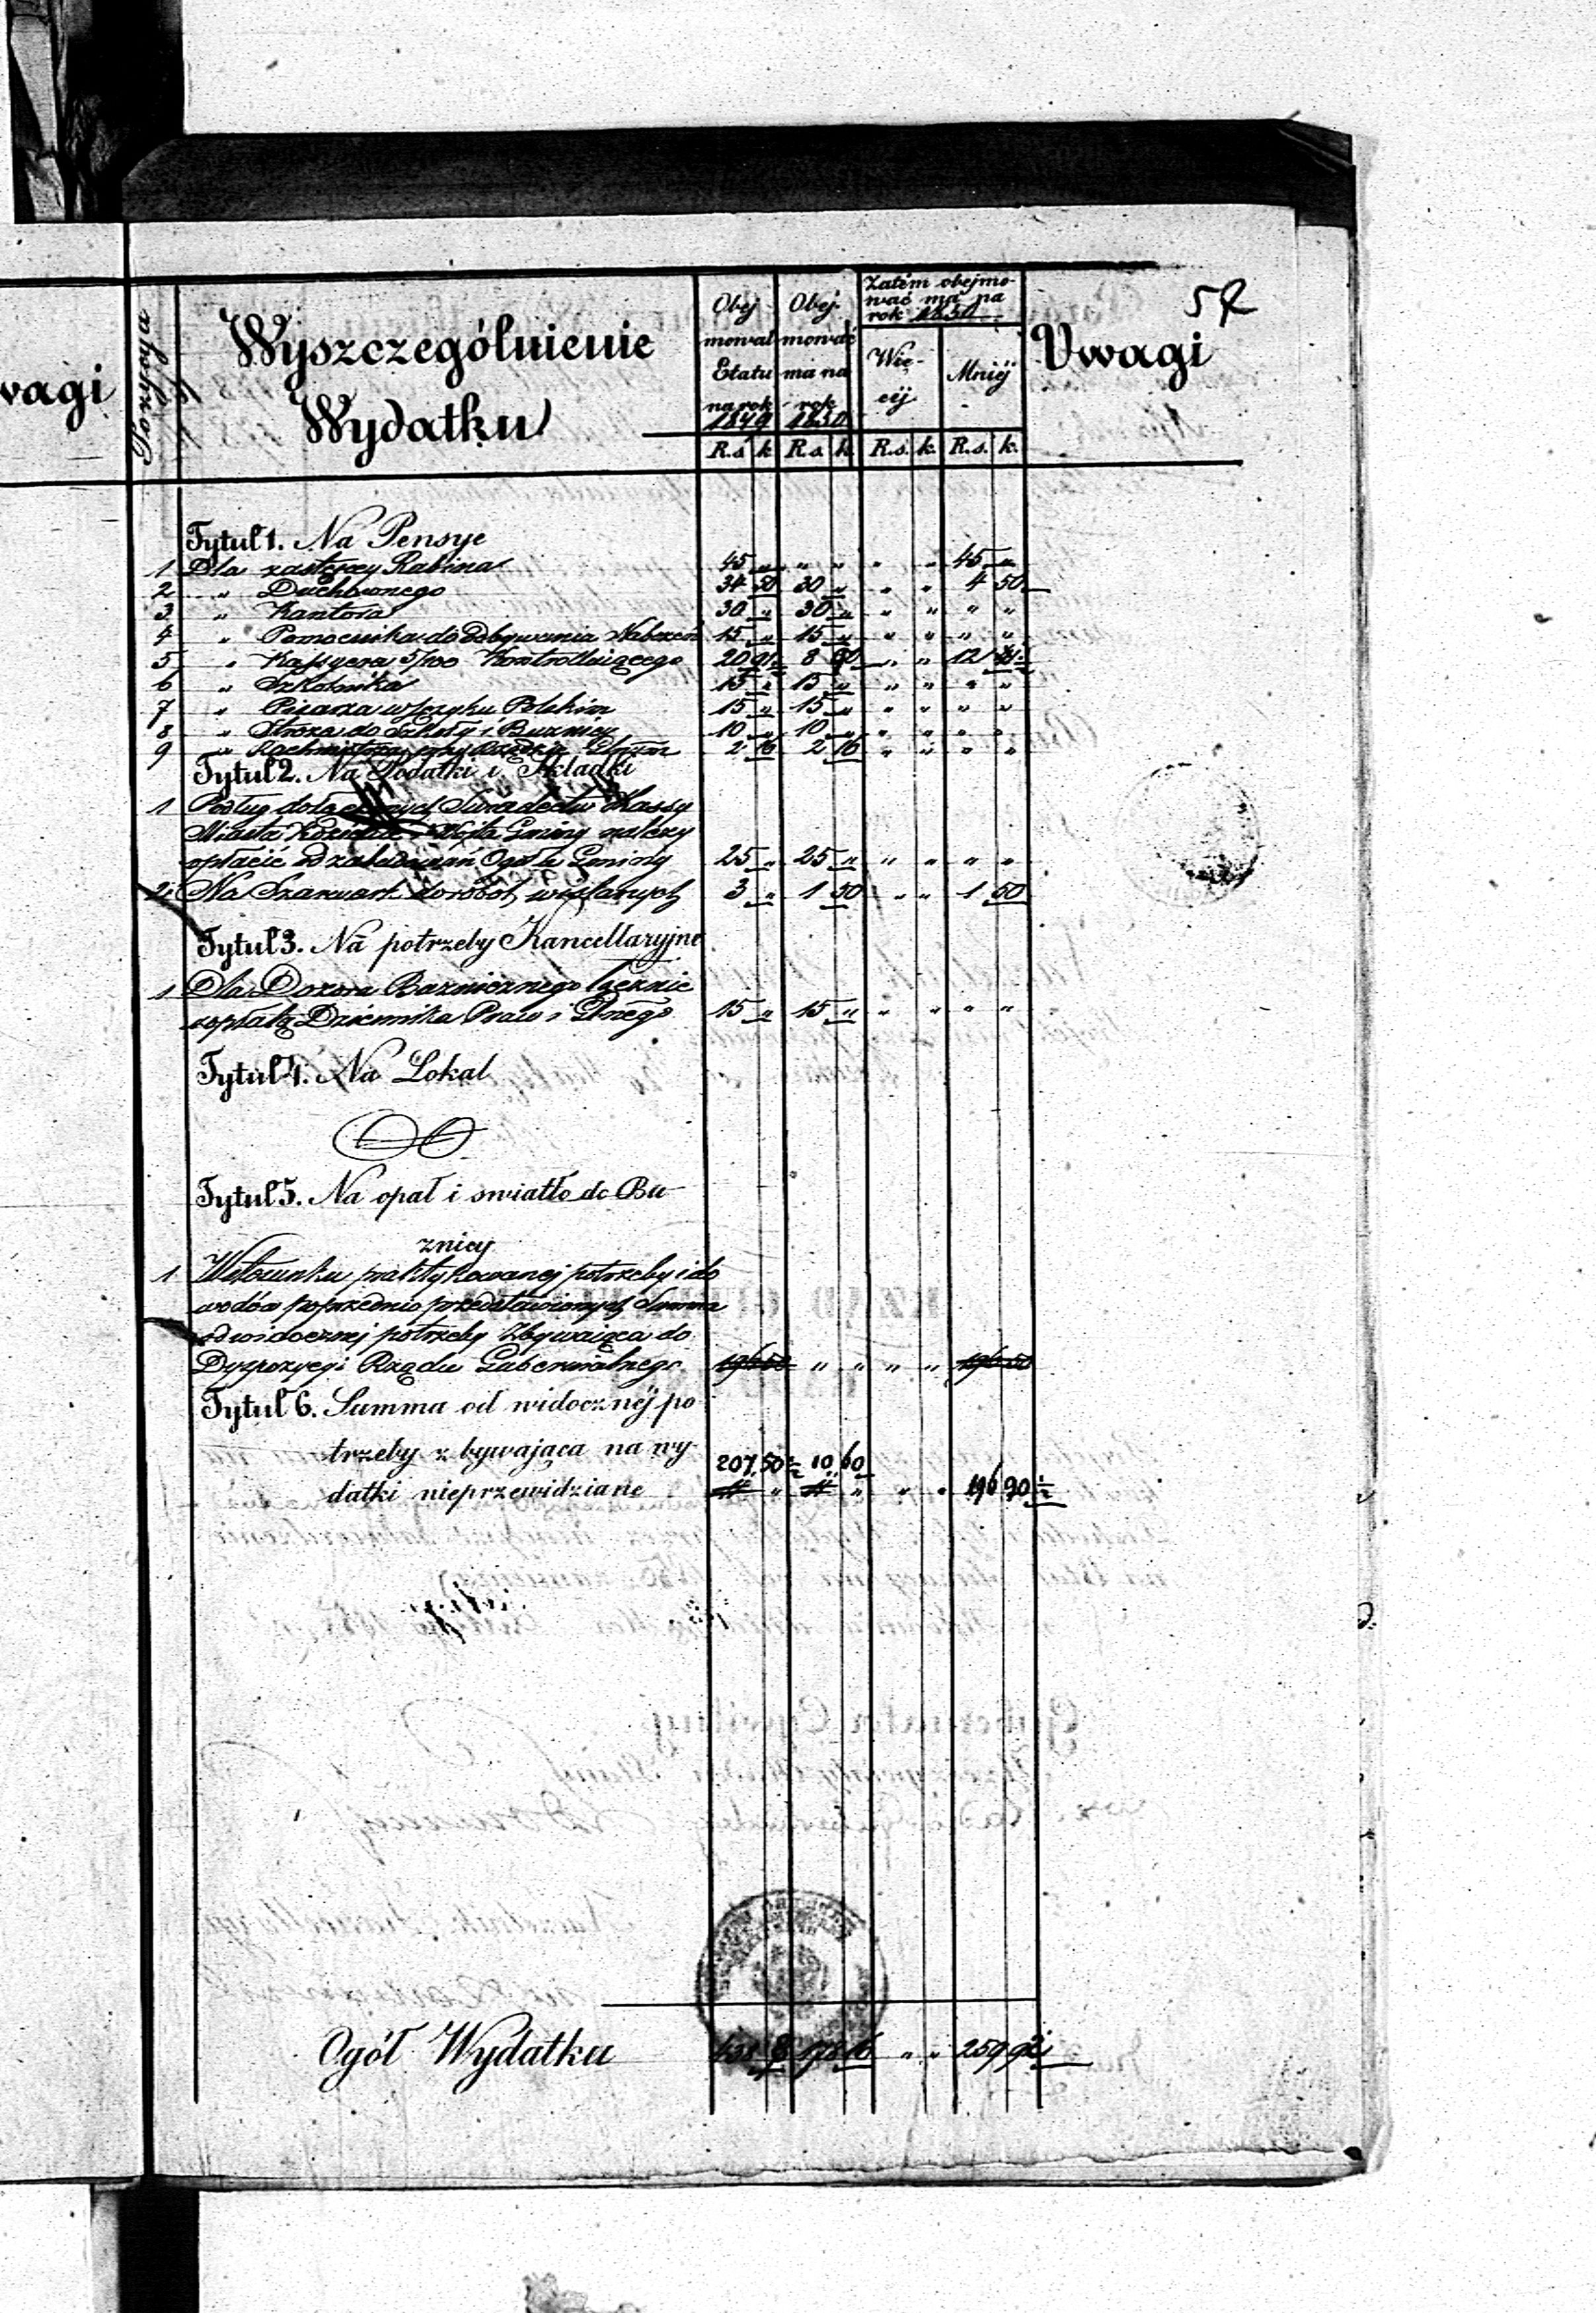 57
wagi
Pozycya
Wyszczególnienie
Wydatku
Obej
mował
Etatu
na rok
1849
Obej-
mować
ma na
rok
1850
Zatém obejmo-
wać ma na
rok 1850
Wię-
céj
Mniéj
Uwagi
R.s. k. R.s. k. R.s. k. R.s. k.
Tytuł 1. Na Pensye
1 Dla zastępcy Rabina 45 „ „ „ „ „ 45 „
2 „ Duchownego 34 50 30 „ „ „ 4 50
3 „ Kantora 30 „ 30 „ „ „ „ „
4 „ Pomocnika do odbywania Nabożeń 15 „ 15 „ „ „ „ „
5 „ Kassyera 5/100 Kontrolluiącego 20 91½ 8 60 „ „ 12
6 „ Szkolnika 15 „ 15 „ „ „ „ „
7 „ Pisarza w Języku Polskim 15 „ 15 „ „ „ „ „
8 „ Stroza do Szkoły i Buznicy 10 „ 10 „ „ „ „ „
9 „ Rachmistrza przy Rządzie Gbrnm 2 16 2 16 „ „ „ „
Tytuł 2. Na Podatki i Składki
1 Podług dołączonych Swiadectw Kassy
Miasta Wójta Gminy należy
opłacić od Ogółu Gminy 25 „ 25 „ „ „ „ „
2 Na Szarwark do robot wiślanych 3 „ 1 50 „ „ 1 50
Tytuł 3. Na potrzeby Kancellaryjne
1 Dla Dozoru Bozniczego łącznie
z opłatą Dziennika Praw i Gbrnego 15 „ 15 „ „ „ „ „
Tytuł 4. Na Lokal
Tytuł 5. Na opał i swiatło do Bu-
znicy
1 W stosunku praktykowanej potrzeby i do
wodów poprzednio przedstawionych Summa
od widocznej potrzeby zbywaiąca do
Dyspozycyi Rządu Gubernialnego 196 50 „ „ „ „ 196 50
Tytuł 6. Summa od widocznéj po-
trzeby zbywająca na wy-
datki nieprzewidziane
207 50½ 10 60
„ „ „ „ 196 90½
Ogół Wydatku 438 8 178 16 „ „ 259 92